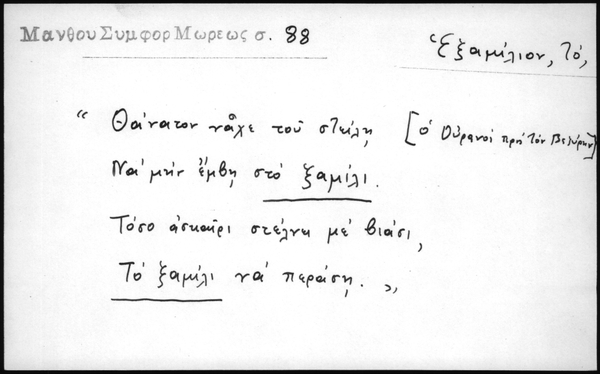 Μανθου Συμφορ Μωρεως σ. 88
Ἑξαμίλιον, τό,
“ Θάνατον νᾆχε τοῦ στείλῃ [ὁ Οὐρανὸς πρὸ τὸν Βεζύρην]
Νὰ μὴν ἔμβῃ στὸ ξαμίλι.
Τόσο ἀσκαῖρι στέλνει μὲ βιάσι,
Τὸ ξαμίλι νὰ περάσῃ. „